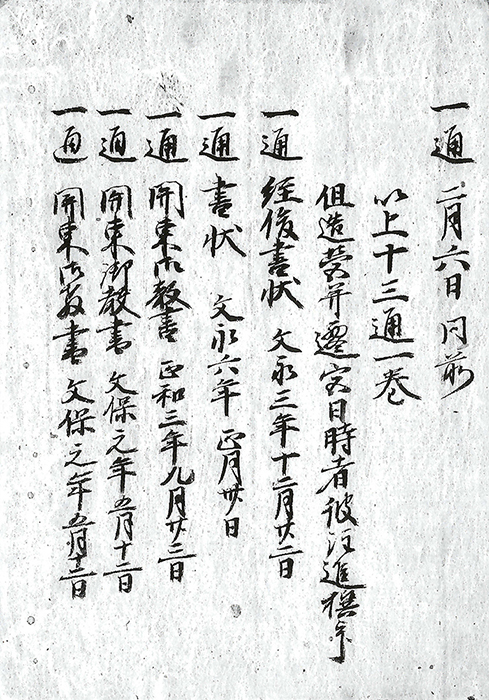 一通 二月六日 同前
以上十三通一巻
但造営并遷宮日時者被注進撰了
一通 経俊書状 文永三年十二月廿二日
一通 書状 文永六年 正月廿日
一通 関東御教書 正和三年九月廿三日
一通 関東御教書 文保元年五月十二日
一通 関東御教書 文保元年五月十二日